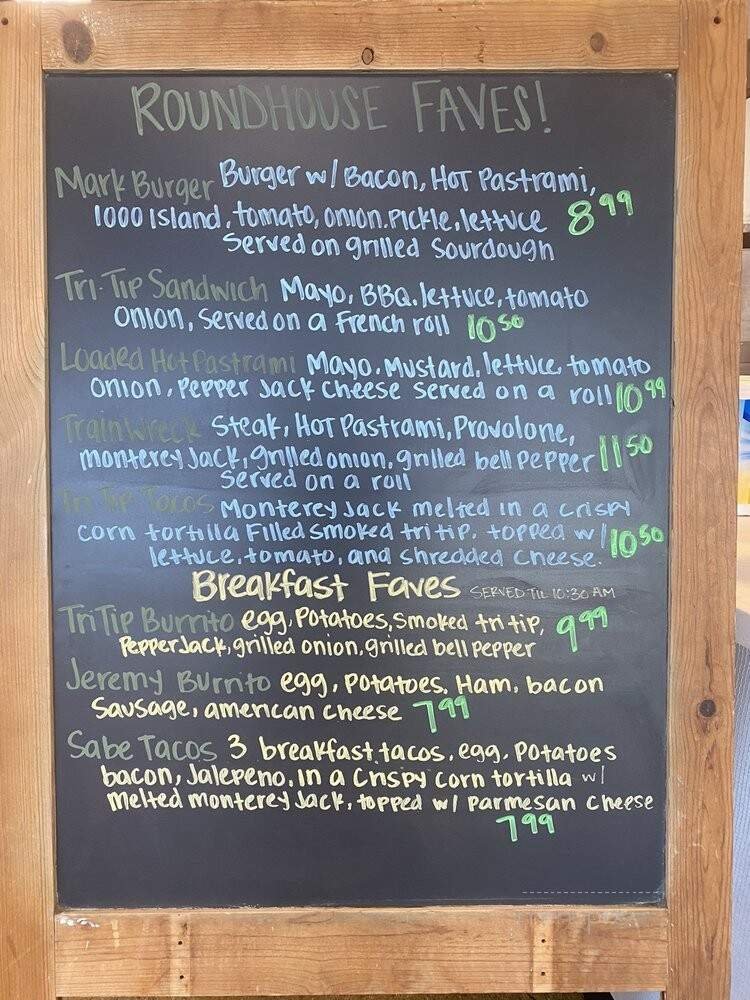 ROUNDHOUSE FAVES!
Mark Burger Burger w/ Bacon, Hot Pastrami,
1000 Island, tomato, onion. Pickle, lettuce 8.99
Served on grilled Sourdough
Tri-Tip Sandwich Mayo, BBQ. lettuce, tomato
onion, Served on a French roll 10.50
Loaded Hot Pastrami Mayo, Mustard, lettuce, tomato
onion, Pepper Jack cheese Served on a roll 10.99
Trainwreck Steak, Hot Pastrami, Provolone,
monterey Jack, grilled onion, grilled bell Pepper 11.50
Served on a roll
Tri Tip Tacos Monterey Jack melted in a crispy
corn tortilla Filled smoked tri tip, topped w/ 10.50
lettuce, tomato, and shredded cheese.
Breakfast Faves SERVED TIL 10:30 AM
Tri Tip Burrito egg, Potatoes, smoked tri tip, 9.99
Pepper Jack, grilled onion, grilled bell pepper
Jeremy Burrito egg, Potatoes, Ham, bacon
Sausage, american cheese 7.99
Sabe Tacos 3 breakfast tacos, egg, Potatoes
bacon, Jalepeno, in a Crispy corn tortilla w/
melted monterey Jack, topped w/ Parmesan cheese
7.99